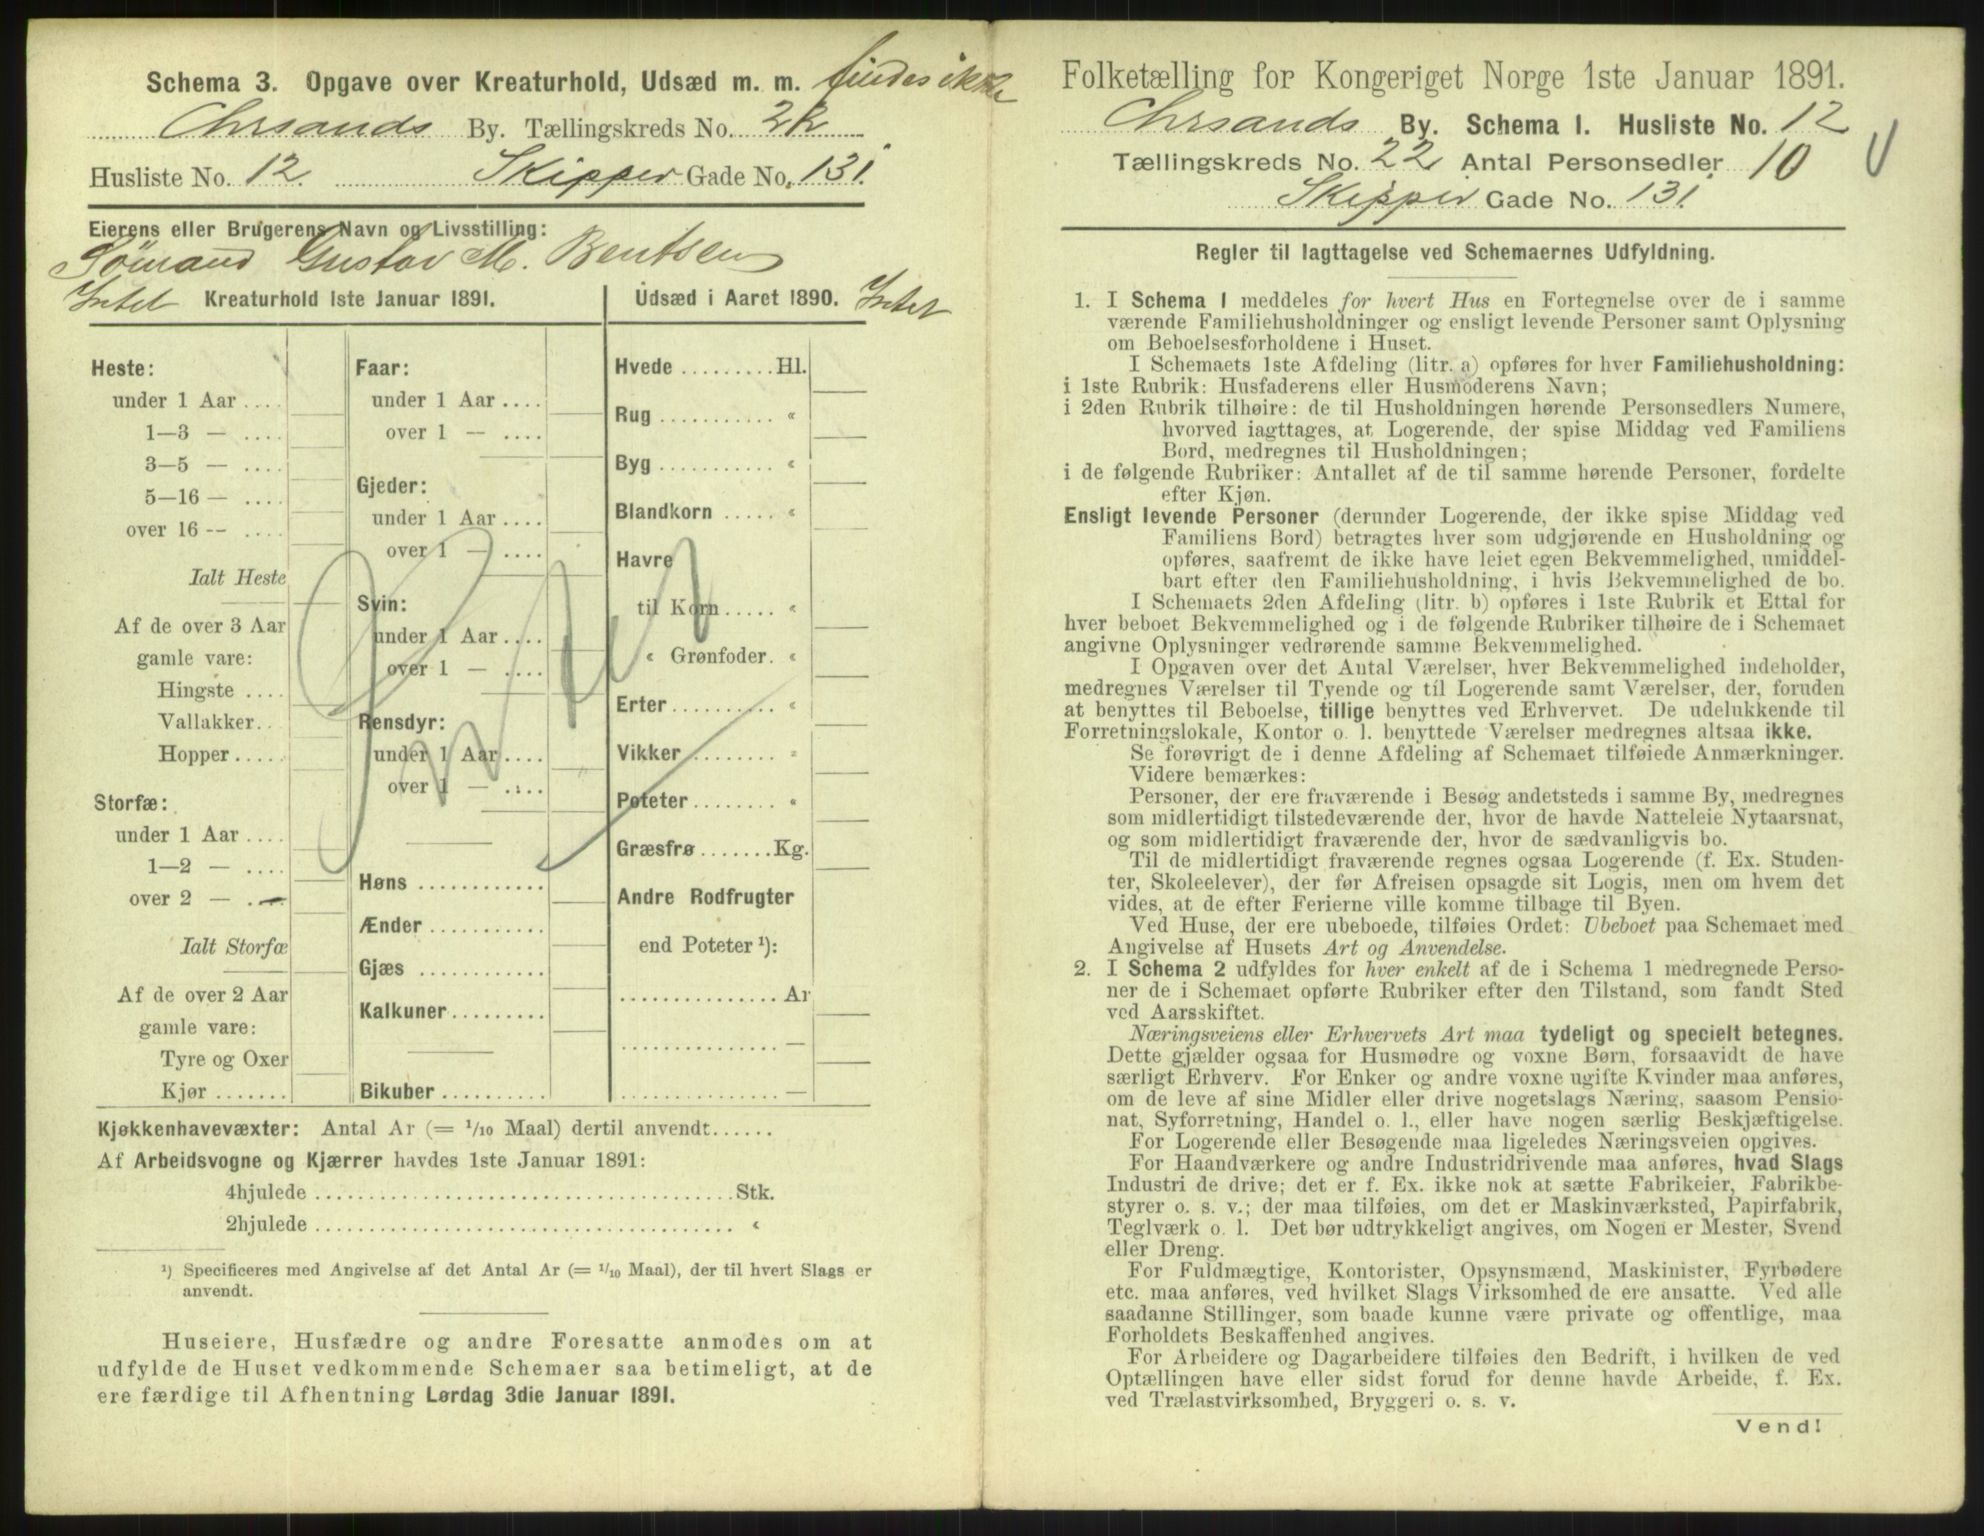 Schema 3. Opgave over Kreaturhold, Udsæd m. m. findes ikke
Chrsands By. Tællingskreds No. 22
Husliste No. 12. Skipper Gade No. 131.
Eierens eller Brugerens Navn og Livsstilling:
Sømand Gustav M. Bentsen
Intet Kreaturhold 1ste Januar 1891.
Heste:
under 1 Aar ....
1—3 — ....
3—5 — ....
5—16 — ....
over 16 -- ....
Ialt Heste
Af de over 3 Aar
gamle vare:
Hingste ....
Vallakker..
Hopper .....
Storfæ:
under 1 Aar ....
1—2 — ....
over 2 — ....
Ialt Storfæ
Af de over 2 Aar
gamle vare:
Tyre og Oxer
Kjør .......
Faar:
under 1 Aar ....
over 1 — ....
Gjeder:
under 1 Aar ....
over 1 — ....
Svin:
under 1 Aar ....
over 1 — ....
Rensdyr:
under 1 Aar ....
over 1 — ....
Høns ............
Ænder ...........
Gjæs ............
Kalkuner.........
Bikuber ..........
Udsæd i Aaret 1890. Intet
Hvede .........Hl.
Rug ........... «
Byg ........... «
Blandkorn ..... «
Havre
til Korn ..... «
« Grønfoder. «
Erter.......... «
Vikker ........ «
Poteter........ «
Græsfrø .......Kg.
Andre Rodfrugter
end Poteter ¹):
............... Ar
............... —
............... —
Kjøkkenhavevæxter: Antal Ar (= 1/10 Maal) dertil anvendt......
Af Arbeidsvogne og Kjærrer havdes 1ste Januar 1891:
4hjulede .......................................Stk.
2hjulede ....................................... «
¹) Specificeres med Angivelse af det Antal Ar (= 1/10 Maal), der til hvert Slags er
anvendt.
Huseiere, Husfædre og andre Foresatte anmodes om at
udfylde de Huset vedkommende Schemaer saa betimeligt, at de
ere færdige til Afhentning Lørdag 3die Januar 1891.
Folketælling for Kongeriget Norge 1ste Januar 1891.
Chrsands By. Schema 1. Husliste No. 12
Tællingskreds No. 22 Antal Personsedler 10
Skipper Gade No. 131.
Regler til Iagttagelse ved Schemaernes Udfyldning.
1. I Schema 1 meddeles for hvert Hus en Fortegnelse over de i samme
værende Familiehusholdninger og ensligt levende Personer samt Oplysning
om Beboelsesforholdene i Huset.
I Schemaets 1ste Afdeling (litr. a) opføres for hver Familiehusholdning:
i 1ste Rubrik: Husfaderens eller Husmoderens Navn;
i 2den Rubrik tilhøire: de til Husholdningen hørende Personsedlers Numere,
hvorved iagttages, at Logerende, der spise Middag ved Familiens
Bord, medregnes til Husholdningen;
i de følgende Rubriker: Antallet af de til samme hørende Personer, fordelte
efter Kjøn.
Ensligt levende Personer (derunder Logerende, der ikke spise Middag ved
Familiens Bord) betragtes hver som udgjørende en Husholdning og
opføres, saafremt de ikke have leiet egen Bekvemmelighed, umiddel-
bart efter den Familiehusholdning, i hvis Bekvemmelighed de bo.
I Schemaets 2den Afdeling (litr. b) opføres i 1ste Rubrik et Ettal for
hver beboet Bekvemmelighed og i de følgende Rubriker tilhøire de i Schemaet
angivne Oplysninger vedrørende samme Bekvemmelighed.
I Opgaven over det Antal Værelser, hver Bekvemmelighed indeholder,
medregnes Værelser til Tyende og til Logerende samt Værelser, der, foruden
at benyttes til Beboelse, tillige benyttes ved Erhvervet. De udelukkende til
Forretningslokale, Kontor o. l. benyttede Værelser medregnes altsaa ikke.
Se forøvrigt de i denne Afdeling af Schemaet tilføiede Anmærkninger.
Videre bemærkes:
Personer, der ere fraværende i Besøg andetsteds i samme By, medregnes
som midlertidigt tilstedeværende der, hvor de havde Natteleie Nytaarsnat,
og som midlertidigt fraværende der, hvor de sædvanligvis bo.
Til de midlertidigt fraværende regnes ogsaa Logerende (f. Ex. Studen-
ter, Skoleelever), der før Afreisen opsagde sit Logis, men om hvem det
vides, at de efter Ferierne ville komme tilbage til Byen.
Ved Huse, der ere ubeboede, tilføies Ordet: Ubeboet paa Schemaet med
Angivelse af Husets Art og Anvendelse.
2. I Schema 2 udfyldes for hver enkelt af de i Schema 1 medregnede Perso-
ner de i Schemaet opførte Rubriker efter den Tilstand, som fandt Sted
ved Aarsskiftet.
Næringsveiens eller Erhvervets Art maa tydeligt og specielt betegnes.
Dette gjælder ogsaa for Husmødre og voxne Børn, forsaavidt de have
særligt Erhverv. For Enker og andre voxne ugifte Kvinder maa anføres,
om de leve af sine Midler eller drive nogetslags Næring, saasom Pensio-
nat, Syforretning, Handel o. l., eller have nogen særlig Beskjæftigelse.
For Logerende eller Besøgende maa ligeledes Næringsveien opgives.
For Haandværkere og andre Industridrivende maa anføres, hvad Slags
Industri de drive; det er f. Ex. ikke nok at sætte Fabrikeier, Fabrikbe-
styrer o. s. v.; der maa tilføies, om det er Maskinværksted, Papirfabrik,
Teglværk o. l. Det bør udtrykkeligt angives, om Nogen er Mester, Svend
eller Dreng.
For Fuldmægtige, Kontorister, Opsynsmænd, Maskinister, Fyrbødere
etc. maa anføres, ved hvilket Slags Virksomhed de ere ansatte. Ved alle
saadanne Stillinger, som baade kunne være private og offentlige, maa
Forholdets Beskaffenhed angives.
For Arbeidere og Dagarbeidere tilføies den Bedrift, i hvilken de ved
Optællingen have eller sidst forud for denne havde Arbeide, f. Ex.
ved Trælastvirksomhed, Bryggeri o. s. v.
Vend!